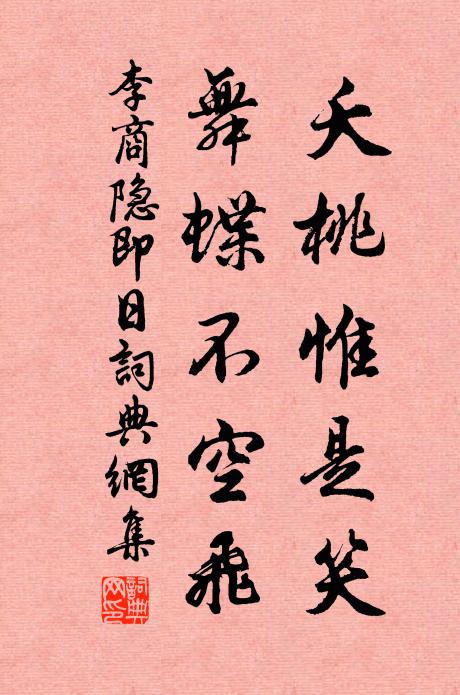 夭桃惟是笑
舞蝶不空飛
李商隐即日詞典網集
詞典
网印